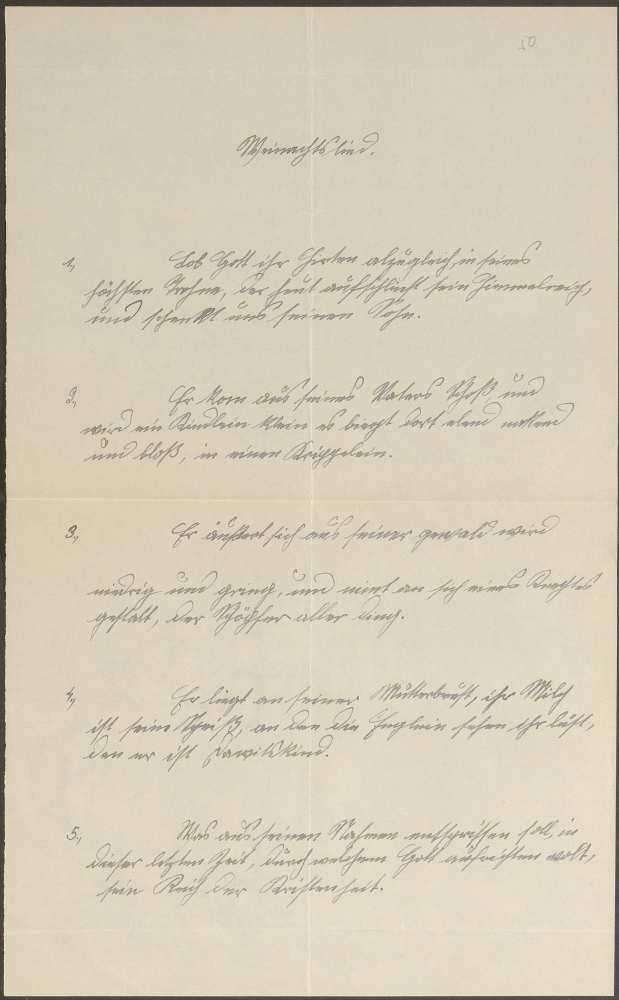 50.
Weinachtslied.
1, Lob Gott ihr Hirten alzugleich, in seines
höchsten Trohne, der heut aufschließt sein Himmelreich,
und schenkt uns seinen Sohn.
2, Er kom aus seines Vaters Schoß und
wird ein Kindlein klein es liegt dort elend nakend
und bloß, in einen Krippelein.
3, Er äußert sich aus seiner gewald wird
niedrig und gring, und nimt an sich eines Knechtes
gestalt, der Schöpfer aller ding.
4, Er liegt an seiner Mutterbrust, ihr Milch
ist seine Speiß, an den die Englein sehen ihr lust,
den er ist Dawitskind.
5, Was aus seinen Stahmen entsprissen soll, in
dieser letzten Zeit, durch welchem Gott aufrichten wolt,
sein Reich der Kristenheit.